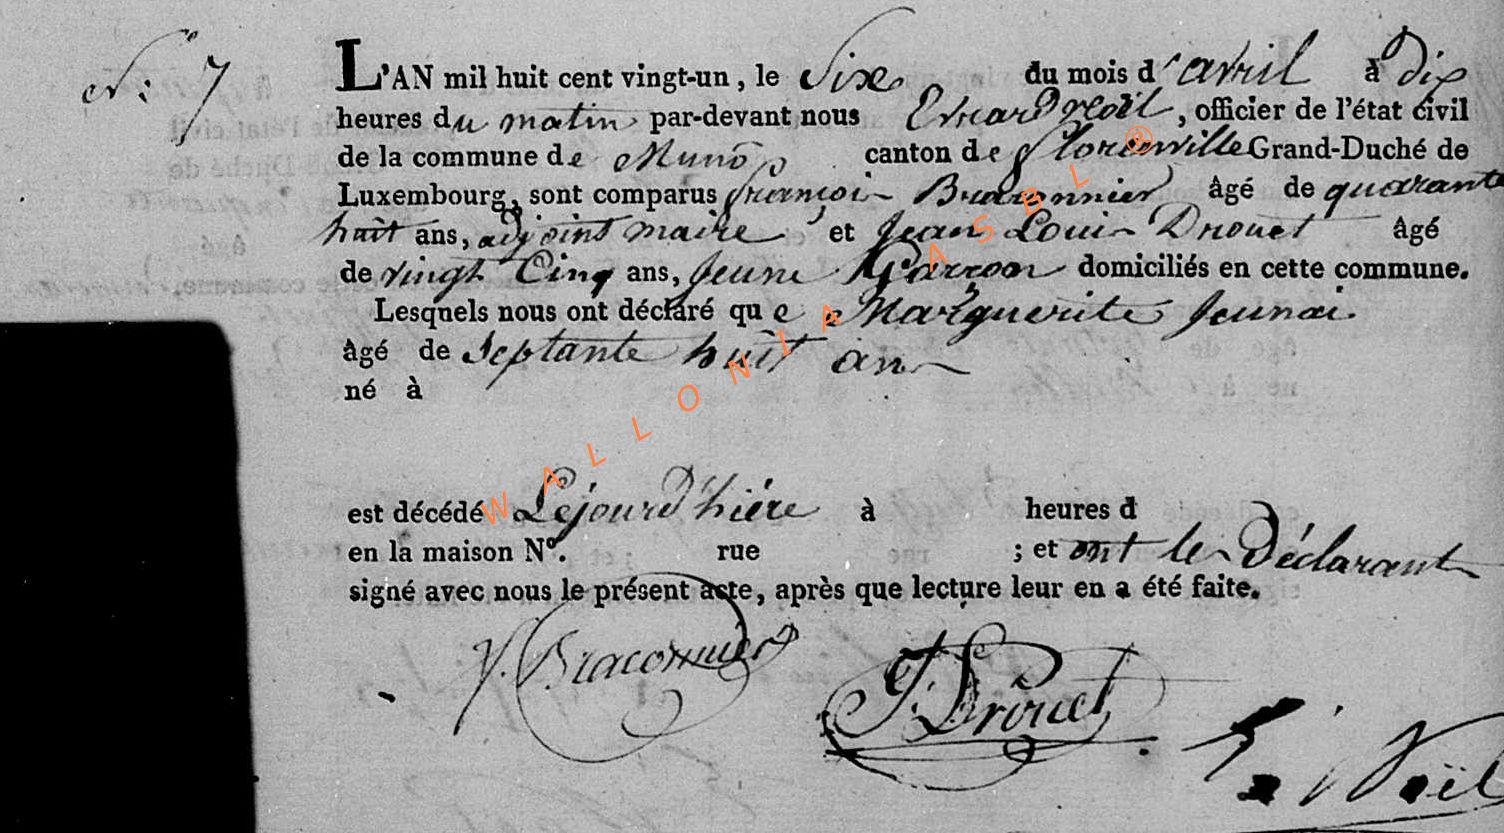 N: 7
L'AN mil huit cent vingt-un, le Sixe du mois d'avril à Dix
heures du matin par-devant nous Evrard Noël, officier de l'état civil
de la commune de Muno canton de Florenville Grand-Duché de
Luxembourg, sont comparus françois Braconnier âgé de quarante
huit ans, adjoint maire et Jean Louis Drouet âgé
de vingt Cinq ans, Jeune Garçon domiciliés en cette commune.
Lesquels nous ont déclaré que Marguerite
âgé de Septante huit ans
né à
est décédé Le jour d'hiére à heures d
en la maison Nº. rue ; et ont les Déclarants
signé avec nous le présent acte, après que lecture leur en a été faite.
Braconnier
J. Drouet
Noël
WALLONIA ASBL ®